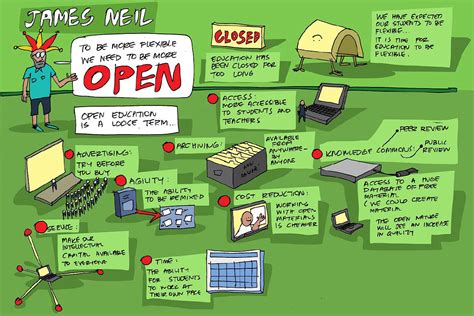 JAMES NEIL
TO BE MORE FLEXIBLE
WE NEED TO BE MORE
OPEN
OPEN EDUCATION
IS A LOOSE TERM...
CLOSED
EDUCATION HAS
BEEN CLOSED FOR
TOO LONG
WE HAVE EXPECTED
OUR STUDENTS TO BE
FLEXIBLE...
IT IS TIME FOR
EDUCATION TO BE
FLEXIBLE.
ACCESS:
MORE ACCESSIBLE
TO STUDENTS AND
TEACHERS
ADVERTISING:
TRY BEFORE
YOU BUY
ARCHIVING:
AVAILABLE
FROM
ANYWHERE-
BY
ANYONE
KNOWLEDGE COMMONS:
PEER REVIEW
PUBLIC
REVIEW
ACCESS TO A HUGE
DATABASE OF FREE
MATERIAL
WE COULD CREATE
MATERIAL
THE OPEN NATURE
WILL SET AN INCREASE
IN QUALITY
AGILITY:
THE ABILITY
TO BE REMIXED
COST REDUCTION:
WORKING
WITH OPEN
MATERIALS IS
CHEAPER
MAKE OUR
INTELLECTUAL
CAPITAL AVAILABLE
TO EVERYONE
TIME:
THE ABILITY
FOR STUDENTS
TO WORK AT
THEIR OWN PACE